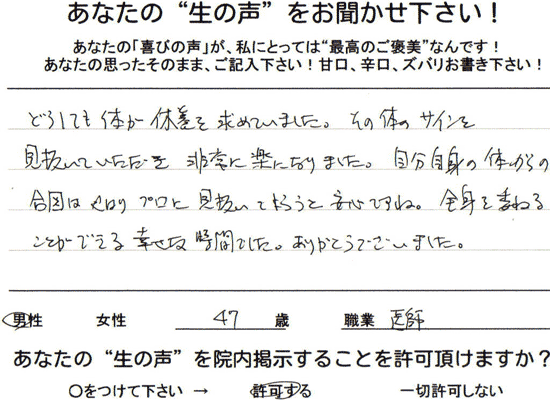 あなたの“生の声”をお聞かせ下さい！
あなたの「喜びの声」が、私にとっては“最高のご褒美”なんです！
あなたの思ったそのまま、ご記入下さい！甘口、辛口、ズバリお書き下さい！
どうしても体が休養を求めていました。その体のサインを
見抜いていただき非常に楽になりました。自分自身の体からの
合図はやはりプロに見抜いてもらうと安心ですね。全身を委ねる
ことができる幸せな時間でした。ありがとうございました。
男性 女性 47 歳 職業 医師
あなたの“生の声”を院内掲示することを許可頂けますか？
〇をつけて下さい → 許可する 一切許可しない